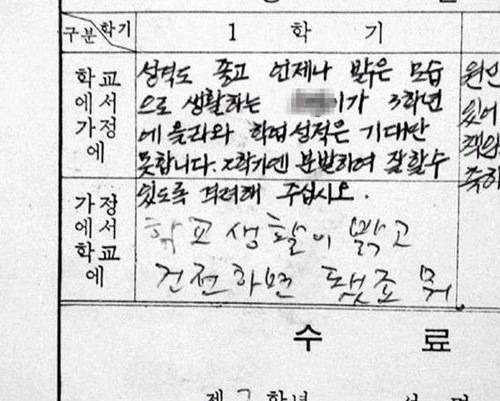 구분 학기
1 학 기
학교에서 가정에
성적도 좋고 언제나 밝은 모습
으로 생활하는 이가 3학년
에 올라와 학업성적은 기대만
못합니다. 2학기엔 분발하여 잘할수
있도록 격려해 주십시오.
원인
있어
축하
가정에서 학교에
학교생활이 밝고
건전하면 됐죠 뭐
수 료
제 학년